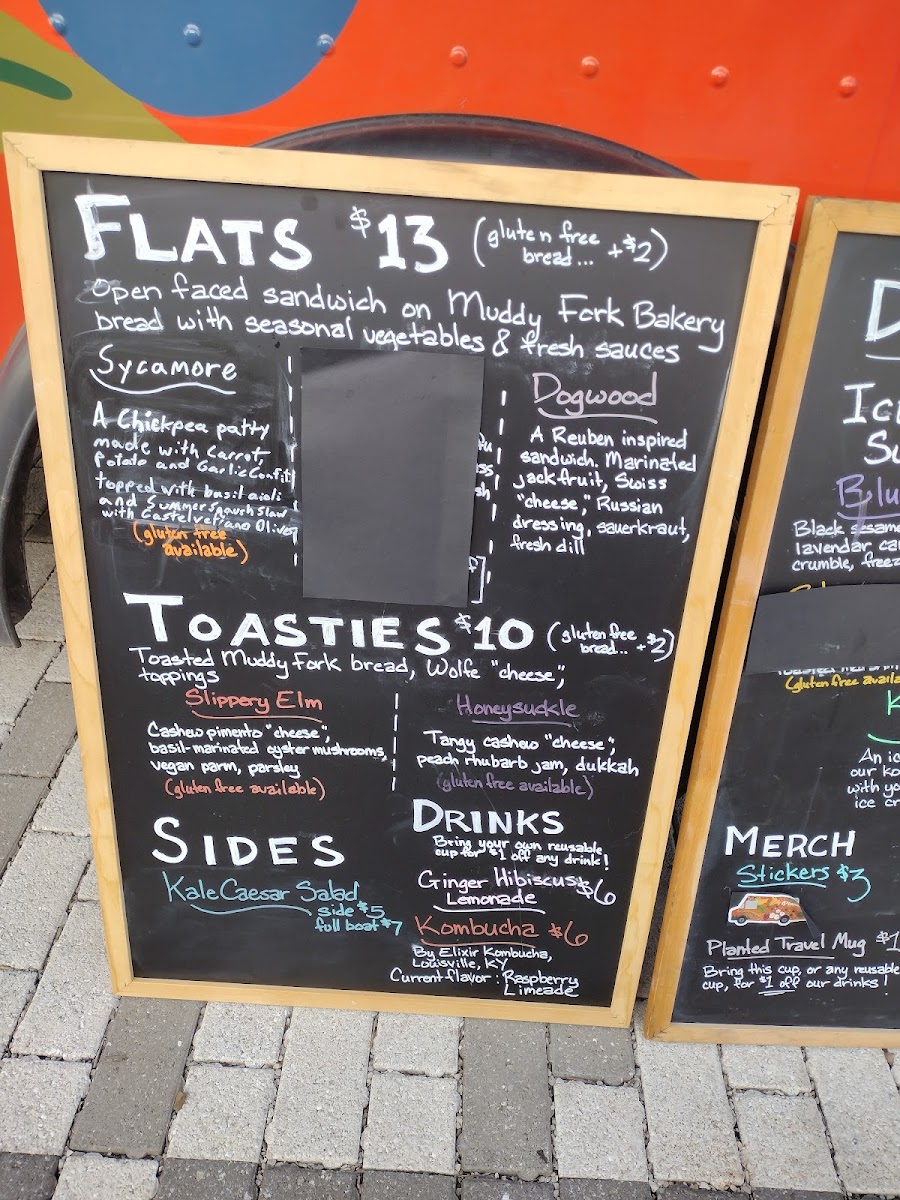 FLATS $13 (gluten free
bread... +$2)
Open faced sandwich on Muddy Fork Bakery
bread with seasonal vegetables & fresh sauces
Sycamore
A Chickpea patty
made with Carrot,
Potato and Garlic Confit
topped with basil aioli
and Summer squash slaw
with Castelvetrano Olives
(gluten free
available)
Dogwood
A Reuben inspired
sandwich. Marinated
jackfruit, Swiss
"cheese", Russian
dressing, sauerkraut,
fresh dill
TOASTIES $10 (gluten free
bread... +$2)
Toasted Muddy Fork bread, Wolfe "cheese",
toppings
Slippery Elm
Cashew pimento "cheese",
basil-marinated oyster mushrooms,
vegan parm, parsley
(gluten free available)
Honeysuckle
Tangy cashew "cheese",
peach rhubarb jam, dukkah
(gluten free available)
SIDES
Kale Caesar Salad
side $5
full boat $7
DRINKS
Bring your own reusable
cup for $1 off any drink!
Ginger Hibiscus $6
Lemonade
Kombucha $6
By Elixir Kombucha,
Louisville, KY
Current flavor: Raspberry
Limeade
D
Ic
Su
Blu
Black sesame
lavendar ca
crumble, freez
(gluten free availa
K
An ic
our ko
with yo
ice cr
MERCH
Stickers $3
Planted Travel Mug $1
Bring this cup, or any reusable
cup, for $1 off our drinks!